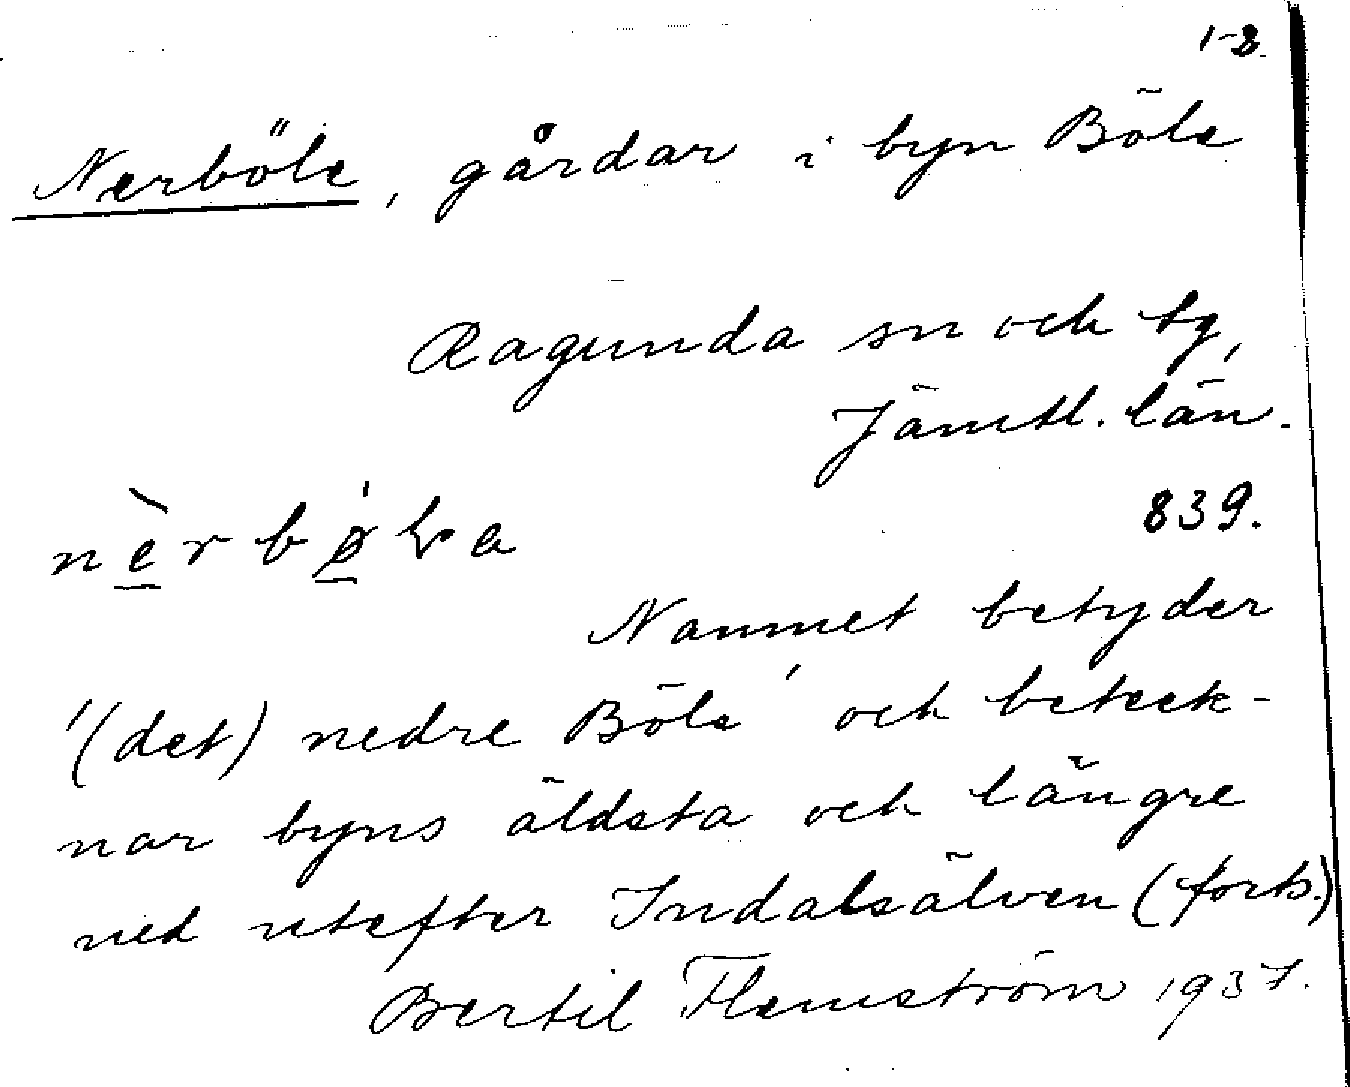 1-2.
Nerböle, gårdar i byn Böle
Ragunda sn och tg,
Jämtl. län.
839.
Namnet betyder
'(det) nedre Böle' och beteck-
nar byns äldsta och längre
ned utefter Indalsälven (forts.)
Bertil Flemström 1937.